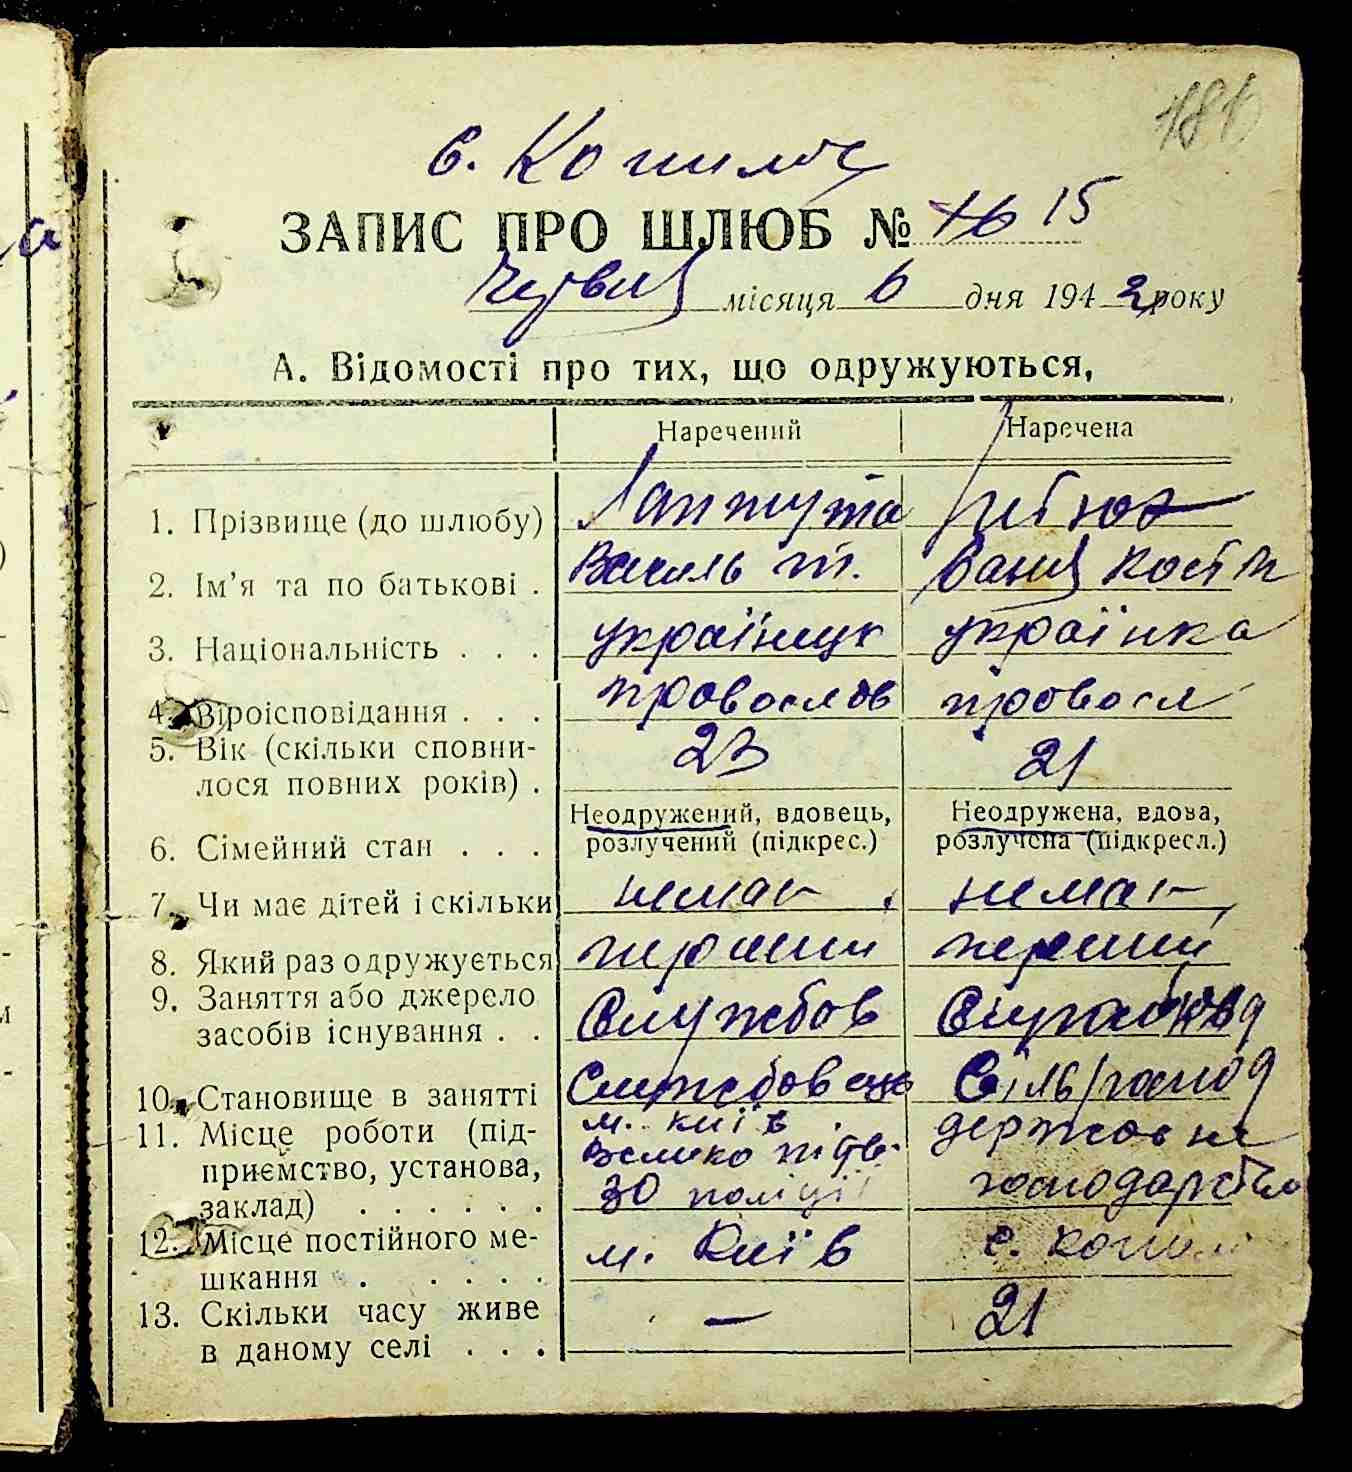 с. Копилів
ЗАПИС ПРО ШЛЮБ № 15
Червня місяця 6 дня 1942 року
А. Відомості про тих, що одружуються,
Наречений Наречена
1. Прізвище (до шлюбу)
2. Ім'я та по батькові . Василь т. Ганя Кост
3. Національність . . . українец українка
4. Віроісповідання . . . провослов провосл
5. Вік (скільки сповни- 23 21
лося повних років) .
Неодружений, вдовець, Неодружена, вдова,
6. Сімейний стан . . . розлучений (підкрес.) розлучена (підкресл.)
7. Чи має дітей і скільки немає немає
8. Який раз одружується перший перший
9. Заняття або джерело
засобів існування . . Службов
10. Становище в занятті Службовець
11. Місце роботи (під- м. київ державне
приємство, установа, господарство
заклад) . . . . . . 30 поліції
12. Місце постійного ме- м. Київ с.
шкання . . . . .
13. Скільки часу живе — 21
в даному селі . . .